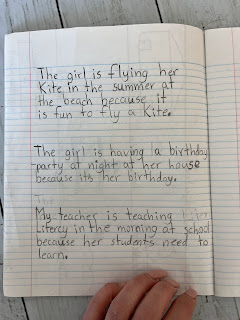 The girl is flying her
Kite in the summer at
the beach because it
is fun to fly a Kite.
The girl is having la birthday
party at night at her house
because its her birthday.
My teacher is teaching
Litercy in the morning at school
because her students need to
learn.